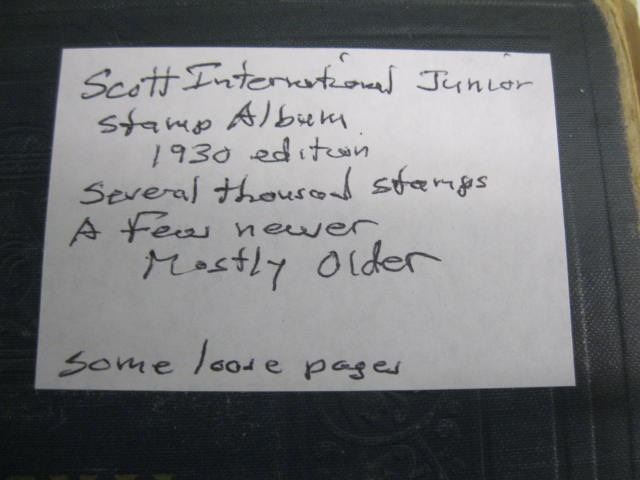 Scott International Junior
Stamp Album
1930 edition
Several thousand stamps
A few newer
Mostly Older
some loose pages